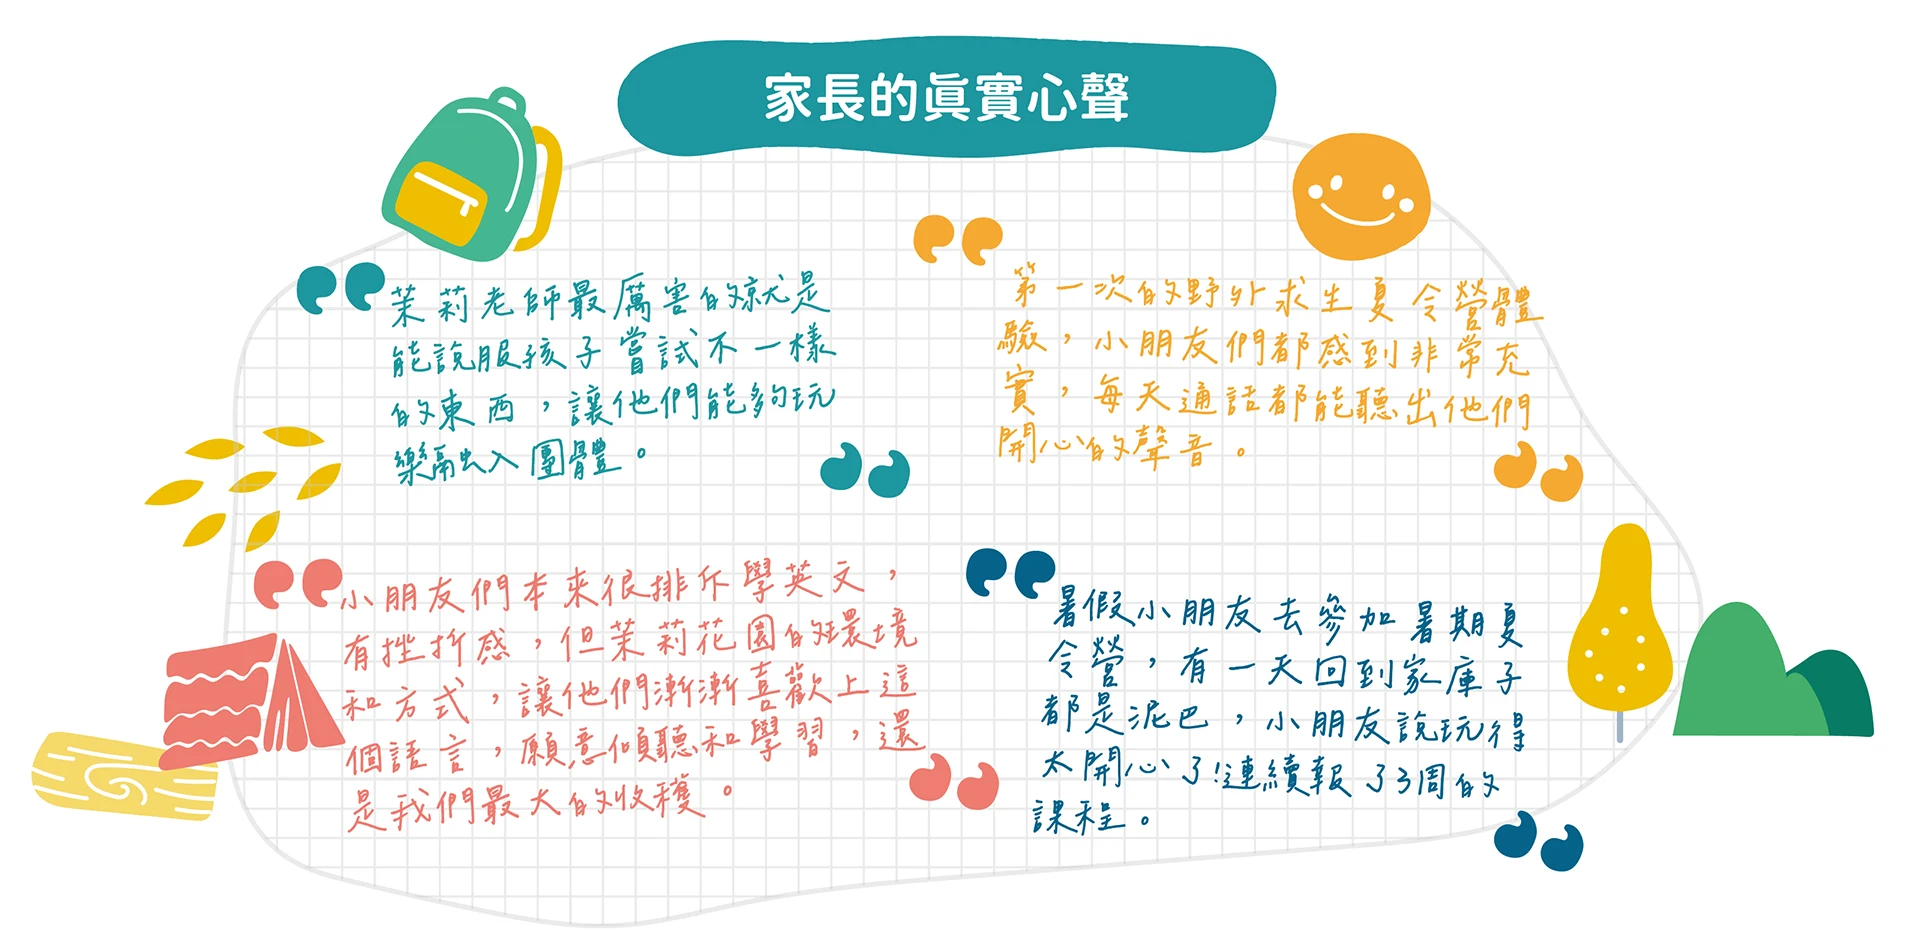 家長的真實心聲
茉莉老師最厲害的就是
能說服孩子嘗試不一樣
的東西，讓他們能夠玩
樂融入團體。
第一次的野外求生夏令營體
驗，小朋友們都感到非常充
實，每天通話都能聽出他們
開心的聲音。
小朋友們本來很排斥學英文，
有挫折感，但茉莉花園的環境
和方式，讓他們漸漸喜歡上這
個語言，願意傾聽和學習，還
是我們最大的收穫。
暑假小朋友去參加暑期夏
令營，有一天回到家庫子
都是泥巴，小朋友說玩得
太開心了!連續報了3周的
課程。